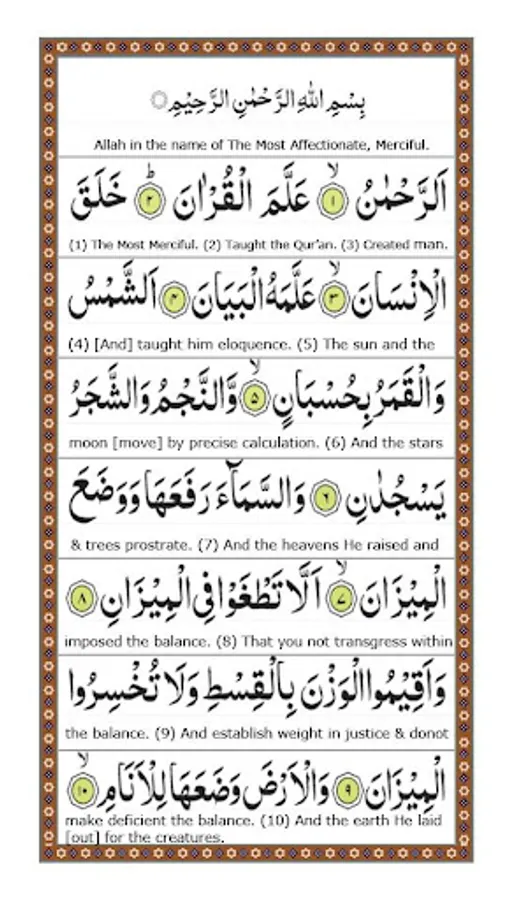 بِسْمِ اللهِ الرَّحْمٰنِ الرَّحِيْمِ
Allah in the name of The Most Affectionate, Merciful.
اَلرَّحْمٰنُ ۙ﴿۱﴾ عَلَّمَ الْقُرْاٰنَ ؕ﴿۲﴾ خَلَقَ
(1) The Most Merciful. (2) Taught the Qur'an. (3) Created man.
الْاِنْسَانَ ۙ﴿۳﴾ عَلَّمَهُ الْبَيَانَ ﴿۴﴾ اَلشَّمْسُ
(4) [And] taught him eloquence. (5) The sun and the
وَالْقَمَرُ بِحُسْبَانٍ ۙ﴿۵﴾ وَّالنَّجْمُ وَالشَّجَرُ
moon [move] by precise calculation. (6) And the stars
يَسْجُدٰنِ ﴿۶﴾ وَالسَّمَآءَ رَفَعَهَا وَوَضَعَ
& trees prostrate. (7) And the heavens He raised and
الْمِيْزَانَ ۙ﴿۷﴾ اَلَّا تَطْغَوْا فِي الْمِيْزَانِ ﴿۸﴾
imposed the balance. (8) That you not transgress within
وَاَقِيْمُوا الْوَزْنَ بِالْقِسْطِ وَلَا تُخْسِرُوا
the balance. (9) And establish weight in justice & donot
الْمِيْزَانَ ﴿۹﴾ وَالْاَرْضَ وَضَعَهَا لِلْاَنَامِ ۙ﴿۱۰﴾
make deficient the balance. (10) And the earth He laid
[out] for the creatures.